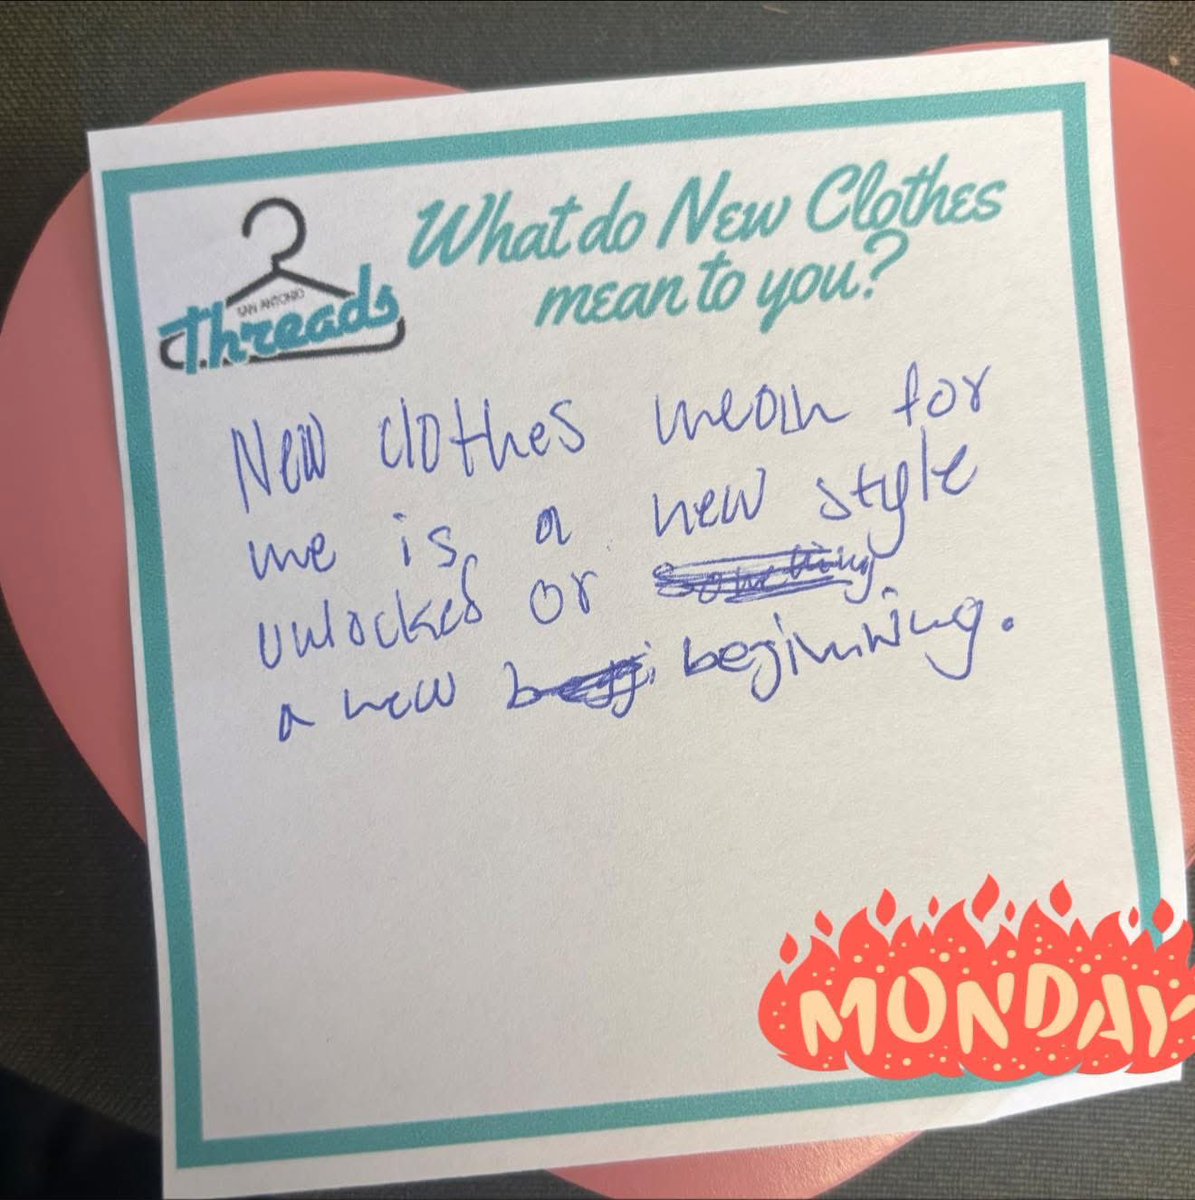 What do New Clothes
mean to you?
SAN ANTONIO
Threads
New clothes mean for
me is a new style
unlocked or something
a new beggi beginning.
MONDAY